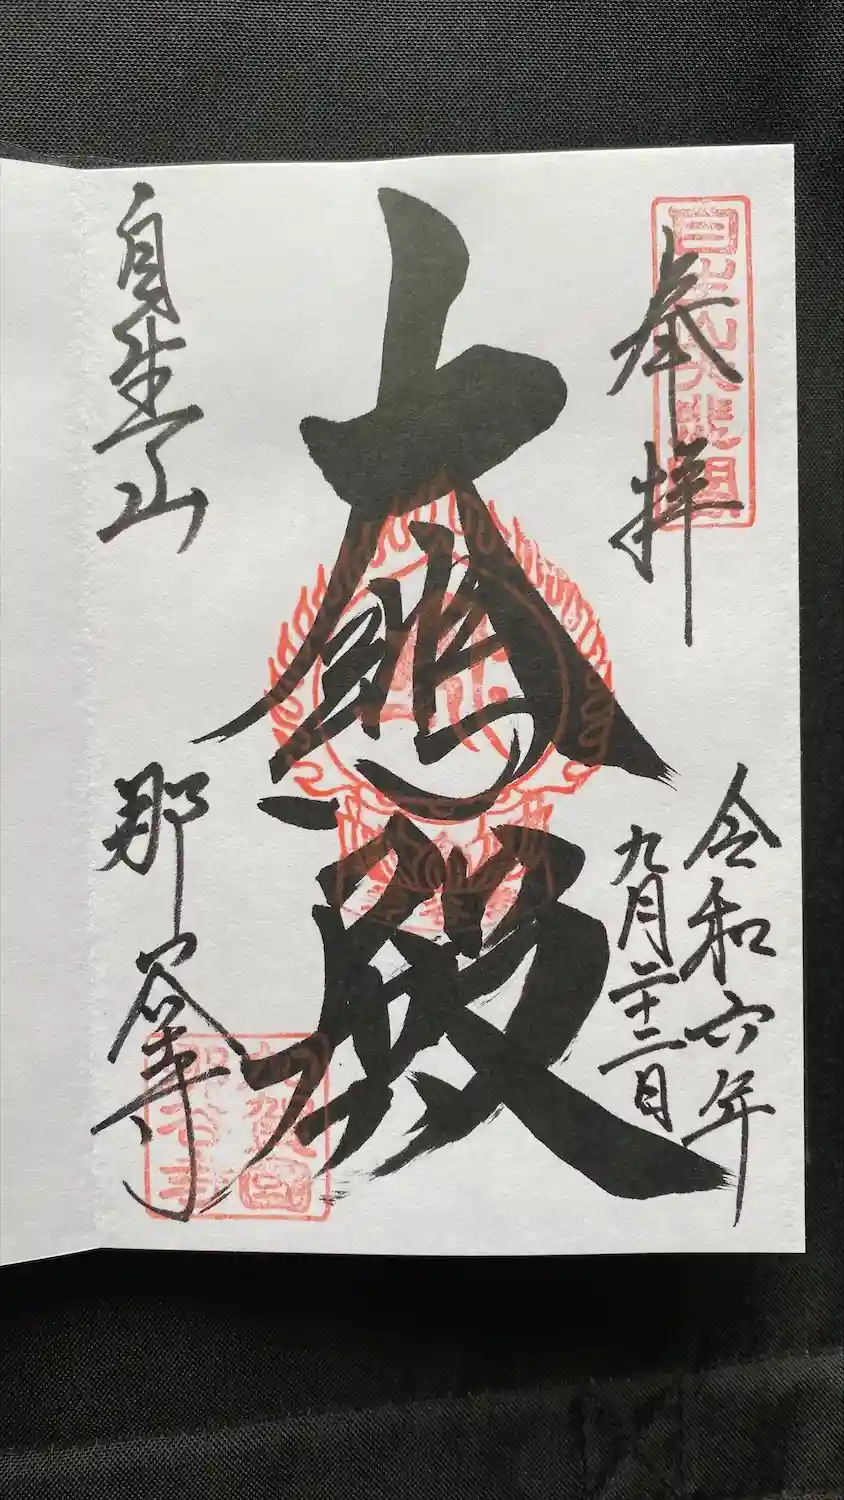 奉拝
令和六年
九月二十二日
大悲殿
自生山
那谷寺
自生山大悲閣
加賀國
那谷寺